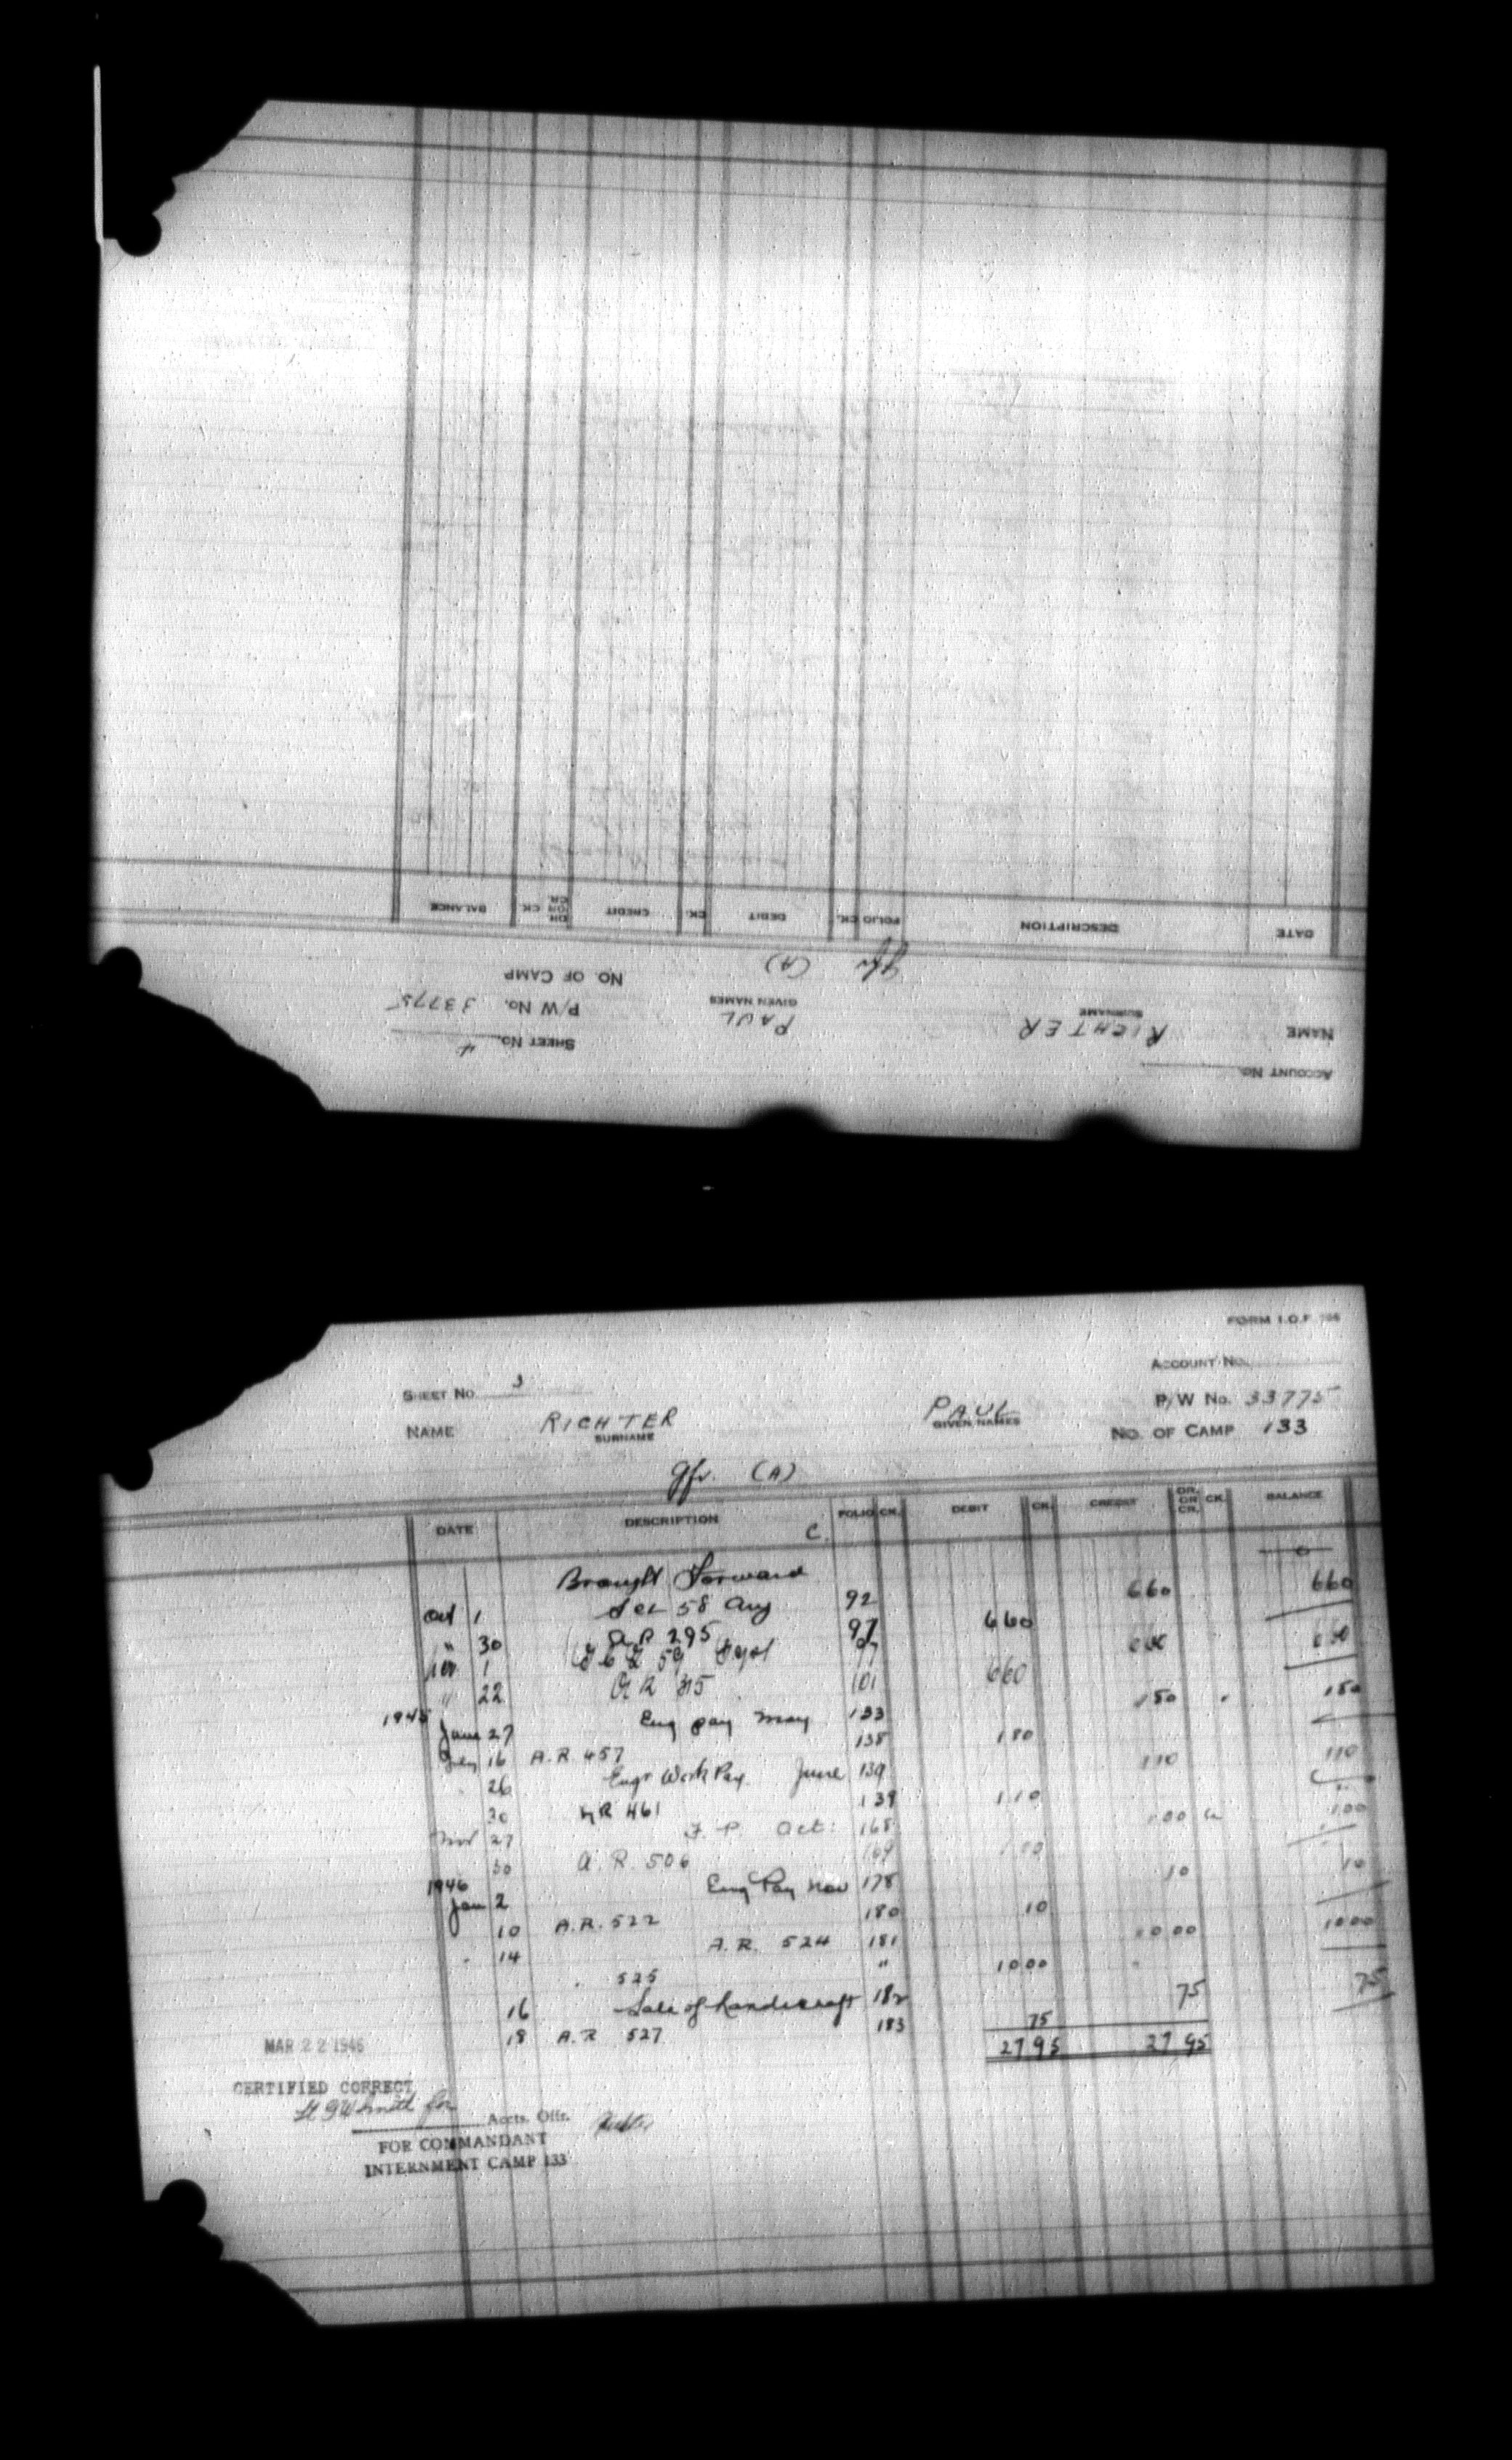 ACCOUNT No.
NAME RICHTER PAUL
SURNAME GIVEN NAMES
SHEET No. 4
P/W No. 33775
NO. OF CAMP
Gfr (A)
DATE DESCRIPTION FOLIO CK. DEBIT CK. CREDIT DR. OR CR. CK. BALANCE
FORM I.O.F.
ACCOUNT No.
SHEET No. 3
P/W No. 33775
NAME RICHTER PAUL
SURNAME GIVEN NAMES
NO. OF CAMP 133
Gfr. (A)
DATE DESCRIPTION FOLIO CK. DEBIT CK. CREDIT DR. OR CR. CK. BALANCE
C.
Brought Forward 0
Oct 1 58 Aug 92 660 660
" 30 A R 295 97 660
Nov 1 59 Sept 97
" 22 A R 315 101 660
1945
June 27 Eng pay May 133 180 180
July 16 A.R. 457 138 180
26 Engr Work Pay June 139 110 110
30 A R 461 139 110
Nov 27 Oct: 168 100
30 A. R. 506 169
1946
Jan 2 Eng Pay Nov 178 10 10
10 A.R. 522 180 10
14 A.R. 524 181 1000 1000
525 " 1000
16 Sale of handicraft 182 75 75
18 A.R 527 183 75
2795 2795
MAR 22 1946
CERTIFIED CORRECT
Lt for
Accts. Offr.
FOR COMMANDANT
INTERNMENT CAMP 133